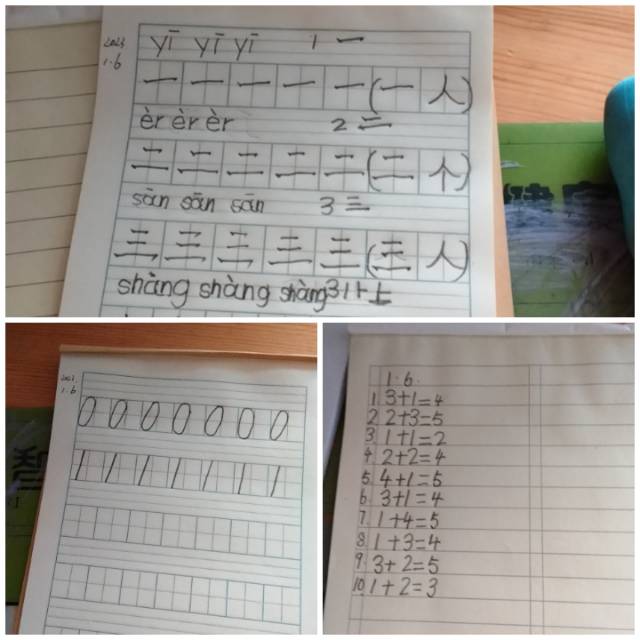 2023
1.6
yī yī yī 1 一
一 一 一 一 一 (一 人)
èr èr èr 2 二
二 二 二 二 二 (二 个)
sān sān sān 3 三
三 三 三 三 三 (三 人)
shàng shàng shàng 3 1 上
1.6
0 0 0 0 0 0 0
1 1 1 1 1 1 1
1.6.
1. 3+1=4
2. 2+3=5
3. 1+1=2
4. 2+2=4
5. 4+1=5
6. 3+1=4
7. 1+4=5
8. 1+3=4
9. 3+2=5
10. 1+2=3